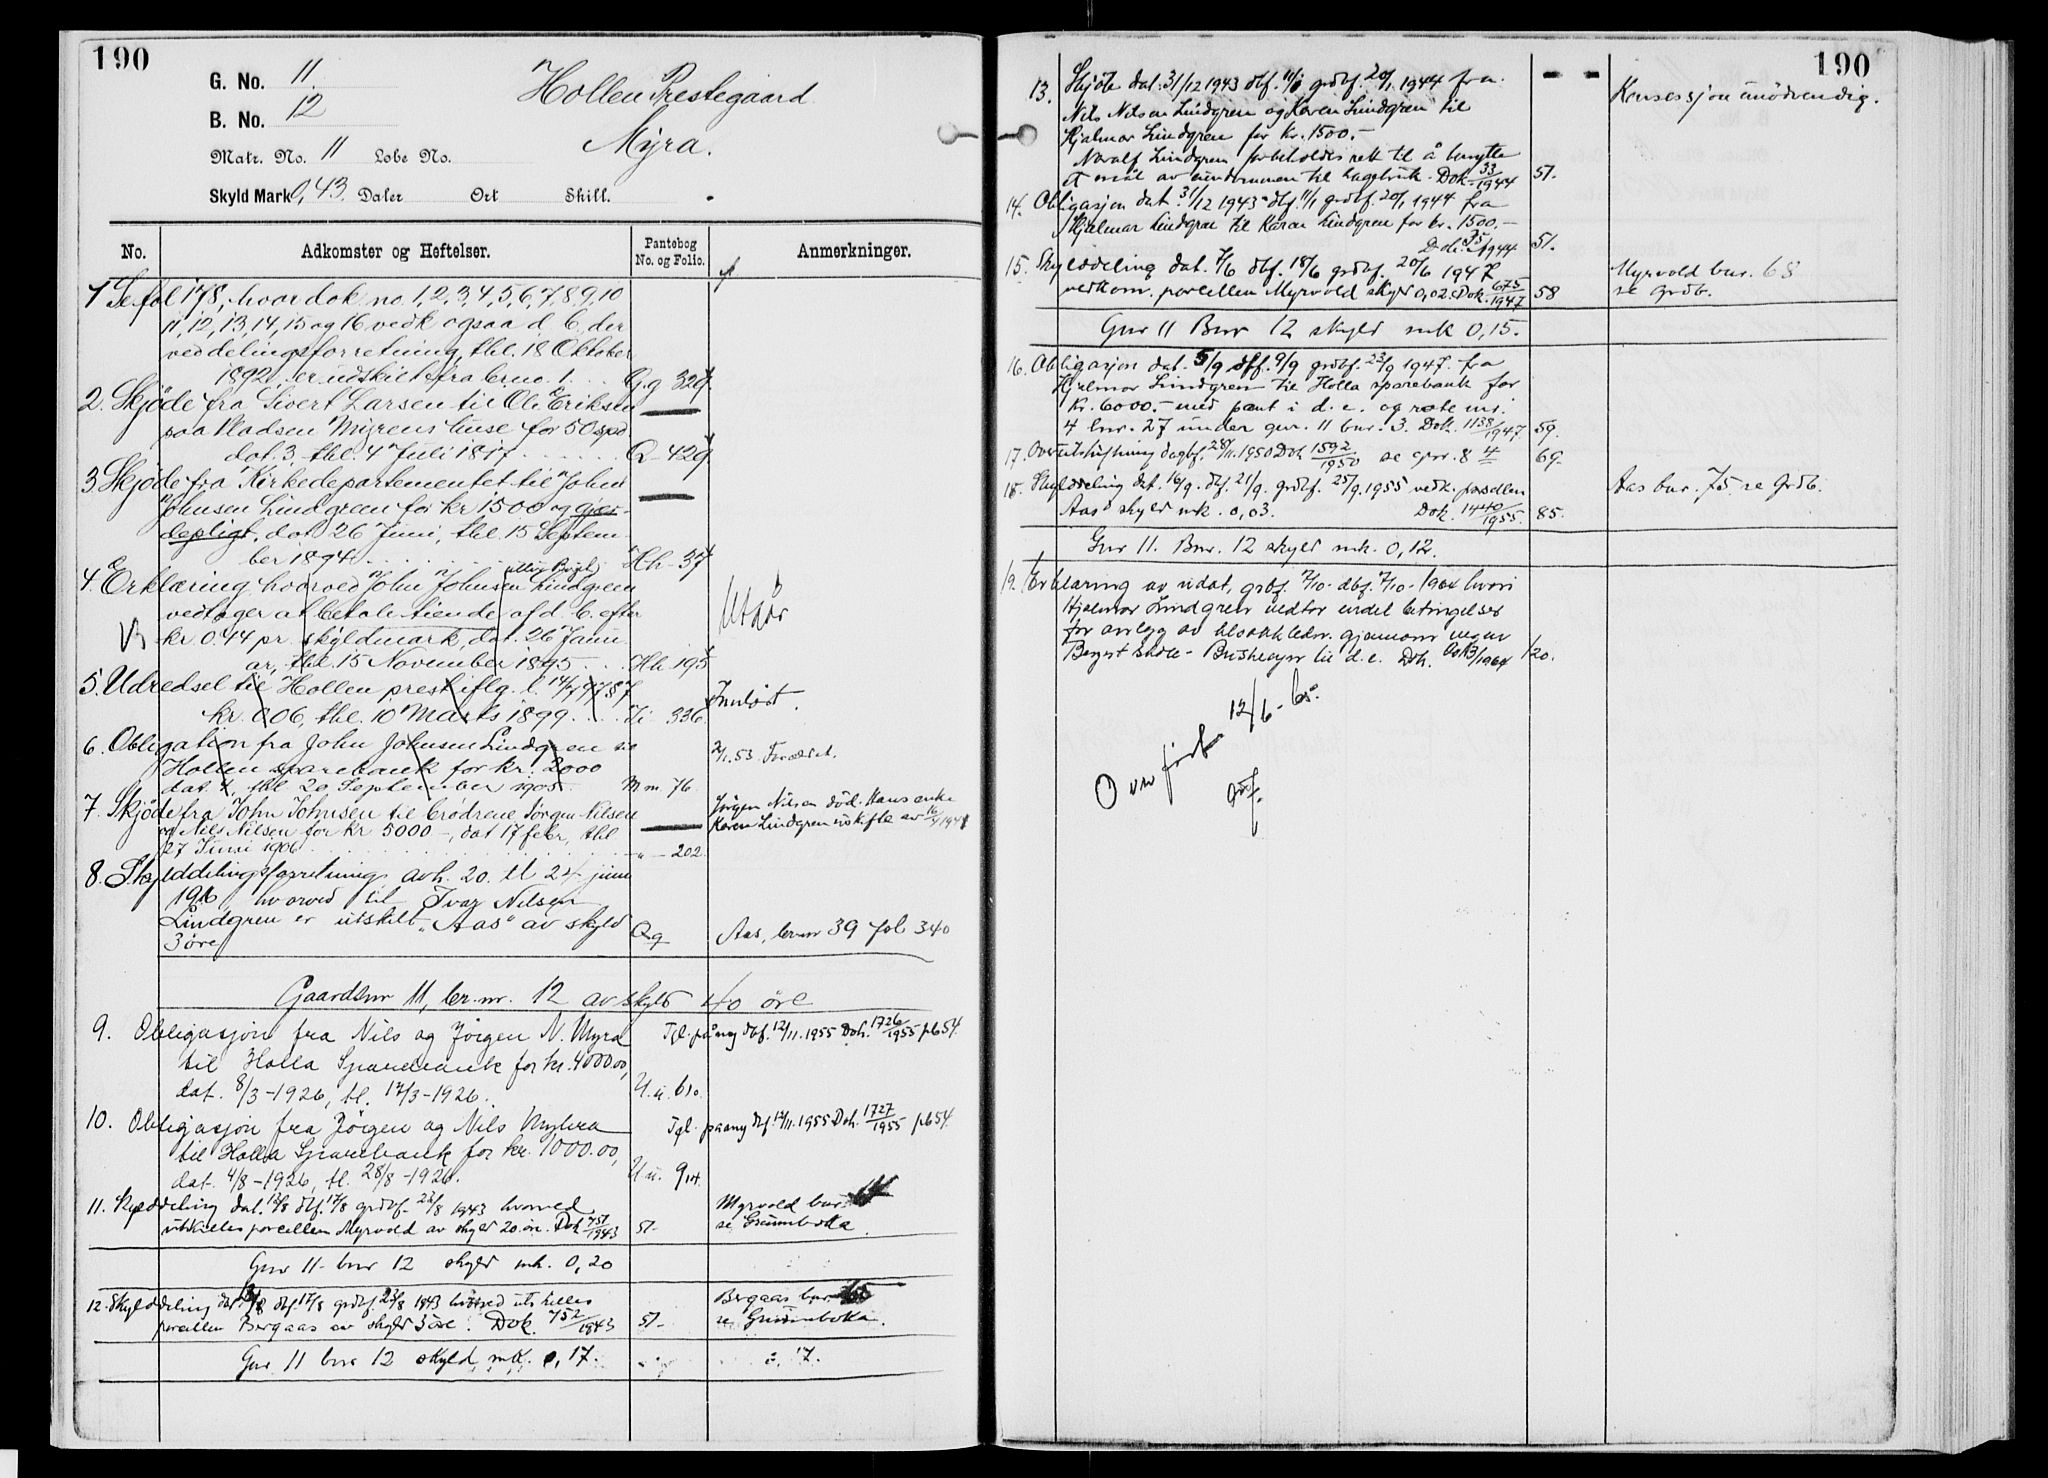 190
G. No. 11.
B. No. 12
Matr. No. 11 Løbe No.
Skyld Mark 0,43. Daler Ort Skill.
Hollen Prestegaard
Myra.
No. Adkomster og Heftelser. Pantebog No. og Folio. Anmerkninger.
1 Se fol 178, hvor dok no. 1, 2, 3, 4, 5, 6, 7, 8, 9, 10
11, 12, 13, 14, 15 og 16 vedk ogsaa d. b. der
ved delingsforretning, thl. 18 Oktober
1892 er udskilt fra br.no. 1. G.g 329
2. Skjöde fra Sivert Larsen til Ole Eriksen
paa Pladsen Myrens huse for 50 spd
dat. 3, thl. 4 Juli 1817 Q 429
3 Skjöde fra Kirkedepartementet til John
Johnsen Lindgren for kr 1500 og gjær-
depligt, dat 26 Juni, thl. 15 Septem-
ber 1894 Hh 37
4. Erklæring hvorved John Johnsen Lindgren
vedtager at betale tiende af d. b. efter
kr. 0.44 pr. skyldmark, dat. 26 Janu-
ar, thl. 15 November 1895 Hh 195
Utgår
5. Udredsel til Hollen prestegl. l. 14/7 97 § 7
kr. 0.06, thl. 10 Marts 1899 Ii 336.
Innløst.
6. Obligation fra John Johnsen Lindgren til
Hollen sparebank for kr. 2000
dat. 4, thl 20 September 1905 M m 76
7. Skjöde fra John Johnsen til brödrene Jörgen Nilsen
og Nils Nilsen for kr 5000 –, dat 17 febr, thl
27 Juni 1906 – " – 202.
Jörgen Nilsen död. Hans enke
Karen Lindgren i uskifte
8. Skylddelingsforretning avh. 20. tl 24 juni
1916, hvorved til Ivar Nilsen
Lindgren er utskilt „Aas" av skyld
3 öre Qq Aas, br.nr 39 fol 340
Gaardsnr 11, br.nr. 12 av skyld 40 öre
9. Obligasjon fra Nils og Jörgen N. Myra
til Holla Sparebank for kr. 4000.00,
dat. 8/3 – 1926, tl. 17/3 – 1926. U.u. 610.
Tgl. på ny dbf. 12/11. 1955 Dok. 1726/1955 pb 54.
10. Obligasjon fra Jörgen og Nils Myhra
til Holla Sparebank for kr. 1000.00,
dat. 4/8 – 1926, tl. 28/8 – 1926. U u. 914.
Tgl. paany dbf. 12/11. 1955 Dok. 1727/1955 pb 54.
11. Skylddeling dat. 12/8 dbf. 17/8 grdbf. 23/8 1943 hvorved
utskilles parcellen Myrvold av skyld 20 öre. Dok 751/1943 51-
Myrvold bnr.
se Grunnboka
Gnr 11 - bnr 12 skyld mk. 0,20
12. Skylddeling dat. 12/8 dbf. 17/8 grdbf. 23/8 1943 hvorved utskilles
parcellen Bergaas av skyld 3 öre. Dok. 752/1943 51-
Bergaas bnr.
se Grunnboka.
Gnr 11 bnr 12 skyld mk. 0,17.
190
13. Skjöte dat. 31/12 1943 dbf. 11/1 grdbf. 20/1 1944 fra
Nils Nilsen Lindgren og Karen Lindgren til
Hjalmar Lindgren for kr. 1500.-
Konsesjon unödvendig.
Lindgren forbeholdes rett til å benytte
et mål av eiendommen til hagebruk. Dok. 33/1944 51.
14. Obligasjon dat. 31/12 1943 dbf. 11/1 grdbf. 20/1 1944 fra
Hjalmar Lindgren til Karen Lindgren for kr. 1500.-
Dok. 35/1944 51.
15. Skylddeling dat. 7/6 dbf. 18/6 grdbf. 20/6 1947
vedkom. parcellen Myrvold skyld 0,02. Dok. 675/1947 58
Myrvold bnr. 68
se grdb.
Gnr 11 Bnr 12 skyld mk 0,15.
16. Obligasjon dat. 5/9 dbf. 9/9 grdbf. 23/9 1947. fra
Hjalmar Lindgren til Holla sparebank for
kr. 6000.- med pant i d. e. og
4 bnr. 27 under gnr. 11 bnr. 3. Dok. 1138/1947 59.
17. dagbf. 28/11. 1950 Dok 1592/1950 se gnr. 8 4 69.
18. Skylddeling dat. 16/9. dbf. 21/9. grdbf. 25/9. 1955 vedk. parsellen
Aas skyld mk. 0,03. Dok. 1440/1955. 85.
Aas bnr. 75. se Grdb.
Gnr 11. Bnr. 12 skyld mk. 0,12.
19. Erklæring av udat, grbf. 7/10. dbf. 7/10. 1964 hvori
Hjalmar Lindgren vedtar endel betingelser
for anlegg av kloakkledn. gjennom
til d. e. Dok. 120.
Overfört 12/6 -